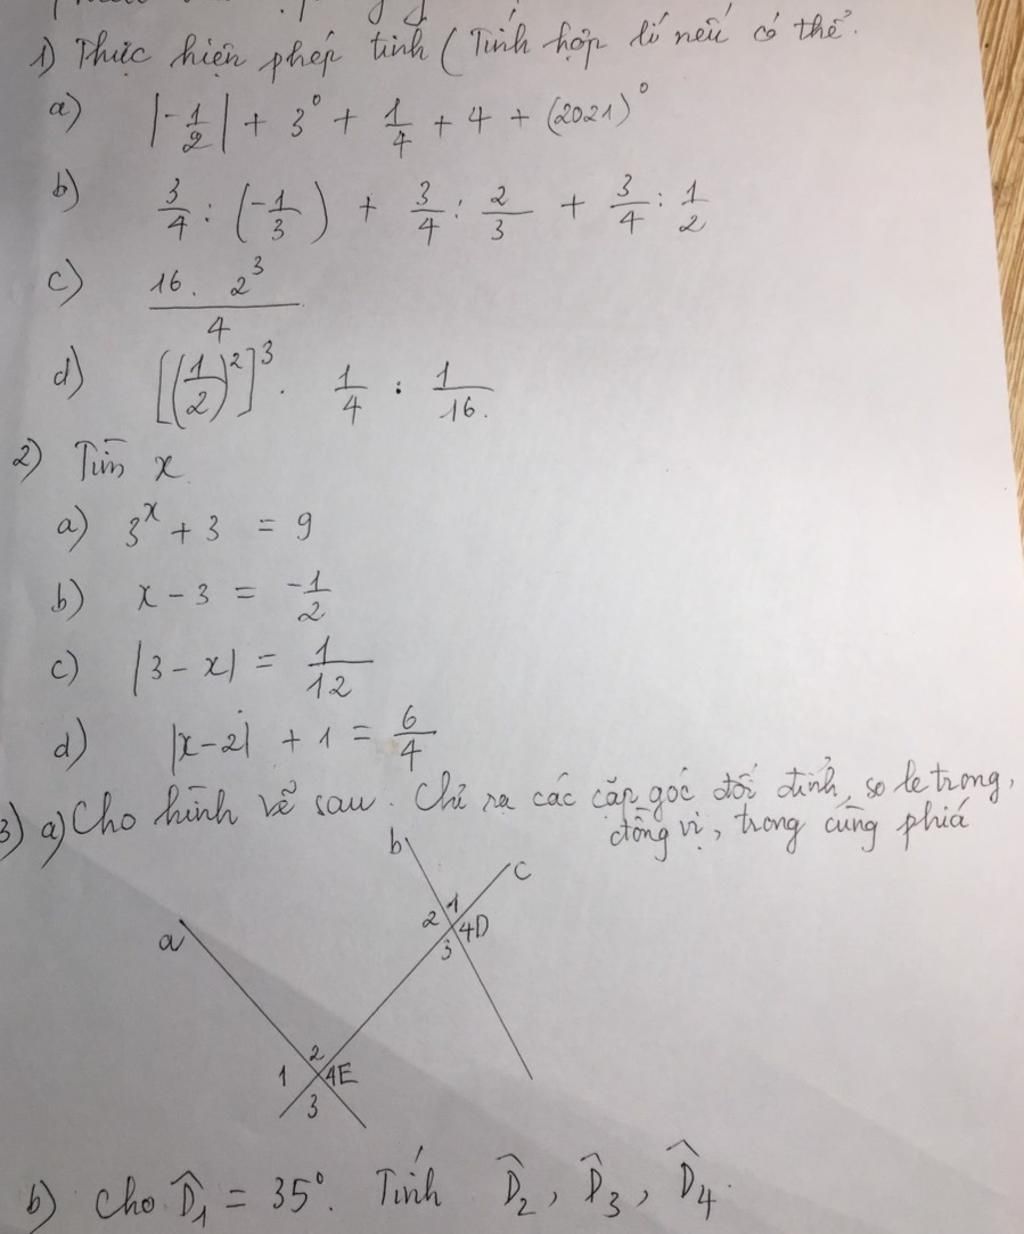 1) Thực hiện phép tính (Tính hợp lí nếu có thể.
a) |-1/2| + 3⁰ + 1/4 + 4 + (2021)⁰
b) 3/4 : (-1/3) + 3/4 : 2/3 + 3/4 : 1/2
c) (16 . 2³)/4
d) [(1/2)²]³ . 1/4 : 1/16.
2) Tìm x
a) 3ˣ + 3 = 9
b) x - 3 = -1/2
c) |3 - x| = 1/12
d) |x - 2| + 1 = 6/4
3) a) Cho hình vẽ sau. Chỉ ra các cặp góc đối đỉnh, so le trong,
đồng vị, trong cùng phiá
b
c
1
2 4D
3
a
2
1 4E
3
b) Cho D̂₁ = 35⁰. Tính D̂₂, D̂₃, D̂₄.